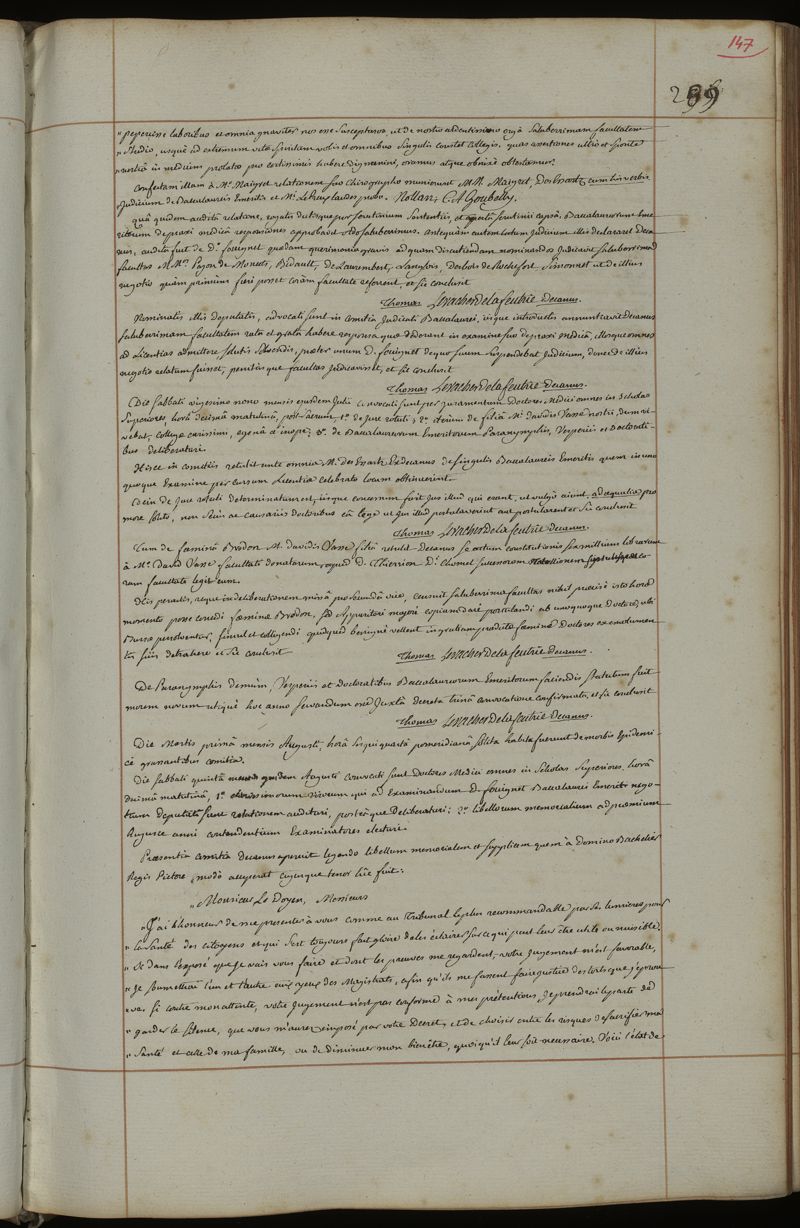 147
299
" peperisse laboribus et omnia gnaviter nos esse suscepturos, ut de nostro ardentissimo ergà saluberrimam facultatem
" studio, usquè ad extremum vitæ spiritum vobis et omnibus singulis constet Collegis. quas assertiones ultrò et sponte
" nostrâ in medium prolatas pro certissimis habere dignemini, oramus atque obnixè obtestamur.
Confectam illam à Mo. Maigret relationem suo chirographo munierunt MM. Maigret, Des Essartz cum his verbis
Judicium de Baccalaureis Emeritis et Mo. Le Preux, Laudes probo. Nollan, C. A Goubelly.
Quâ quidem auditâ relatione, rogatis de utroque per scrutinium sententiis, et apertâ scrutinii capsâ, Baccalaureorum Eme
ritorum de praxi medicâ responsiones approbavit ordo saluberrimus. antequàm autem latum Judicium illis declararet Deca
nus, audita fuit de Do. fouignet quædam querimonia gravis ad quam discutiendam nominandos Judicavit saluberrima
facultas M.Mros Pajon de Moncets, Bidault, de Laurembert, Langlois, Desbois de Rochefort, Simonnet ut de illius
negotio quàm primùm fieri posset coràm facultate referrent, et sic conclusit
Thomas Levacher de la feutrie Decanus.
Nominatis illis deputatis, advocati sunt in comitia Judicati Baccalaurei, iisque introductis annuntiavit Decanus
saluberrimam facultatem rata et grata habere responsa quæ dederant in examine suo de praxi medicâ, illosque omnes
ad Licentias admittere solutis solvendis, præter unum D. fouignet de quo suum suspendebat Judicium, donec de illius
negotio relatum fuisset, penitùsque facultas Judicavisset, et sic conclusit
Thomas Levacher de la feutrie Decanus.
Die Sabbati vigesimo nono mensis ejusdem Julii convocati sunt per Juramentum Doctores Medici omnes in Scholas
Superiores, horâ decimâ matutinâ, post sacrum, 1o. de Jure rotuli; 2o. iterùm de filiâ Mi. Davidis Vasse nostri, dum vi
vebat, collegæ carissimi, egenâ et inope; 3o. de Baccalaureorum Emeritorum Paranymphis, Vesperiis et Doctorati-
bus deliberaturi.
Hisce in comitiis retulit ante omnia M. Des Essartz Exdecanus de singulis Baccalaureis Emeritis quem in uno
quoque Examine per cursum Licentiæ celebrato locum obtinuerint.
Dein de Jure rotuli determinatum est, iisque concessum fuit Jus illud qui erant, ut vulgò aiunt, ad æqualia pro
more solito, nec non ac causariis doctoribus eâ lege ut qui illud postulaverint aut postularent et sic conclusit
Thomas Levacher de la feutrie Decanus.
Tum de fæminâ Brodon M. Davidis Vasse filiâ retulit Decanus se actum constitutionis sex millium librarum
à Mo. David Vasse facultati donatarum, apud D. Thierrion Di. Chomel successorem
ram facultate legit eum.
His peractis, reque in deliberationem missâ pro secundâ vice, censuit saluberrima facultas nihil præcisè isto horæ
momento posse concedi fæminæ Brodon, sed Apparitori majori copiam dare postulandi ab unoquoque Doctore, ubi
Bursæ persolventur, simul et colligendi quidquid benignè vellent in gratiam prædictæ fæminæ Doctores ex emolumen
tis suis detrahere et sic conclusit
Thomas Levacher de la feutrie Decanus.
De Paranymphis demùm, Vesperiis et Doctoratibus Baccalaureorum Emeritorum faciendis statutum fuit
morem novum utiquè hoc anno servandum esse Juxtà decreta trinâ convocatione confirmata, et sic conclusit
Thomas Levacher de la feutrie Decanus.
Die Martis primâ mensis Augusti, horâ sesqui quartâ pomeridianâ solita habita fuerunt de morbis Epidemi-
cè grassantibus comitia.
Die sabbati quintâ Augusti convocati sunt Doctores Medici omnes in Scholas Superiores, horâ
decimâ matutinâ, 1o. virorum qui ad Examinandum D. fouignet Baccalaurei Emeriti nego-
tium deputati sunt relationem audituri, posteàque Deliberaturi: 2o. libellorum memorialium ad præmium
hujusce anni contendentium Examinatores electuri.
Præsentia comitia Decanus aperuit legendo libellum memorialem et supplicem quem à Domino Bachelier
Regis Pictore, modò acceperat cujusque tenor hîc fuit:
" Monsieur Le Doyen, Messieurs
" J'ai l'honneur de me presenter à vous comme au tribunal le plus recommandable par ses lumieres pour
" la santé des citoyens et qui s'est toujours fait gloire de les éclairer sur ce qui peut leur être utile ou nuisible.
" Si dans l'exposé que je vais vous faire et dont les preuves me regardent, votre Jugement m'est favorable,
" Je soumettrai l'un et l'autre aux yeux des Magistrats, afin qu'ils me fassent faire justice des torts que j'éprou
" ve. Si contre mon attente, votre Jugement n'est pas conforme à mes prétentions, Je prendrai le parti de
" garder le silence, que vous m'aurez imposé par votre Decret, et de choisir entre les risques de sacrifier ma
" Santé et celle de ma famille, ou de diminuer mon bien être, quoiqu'il leur soit necessaire. Voici l'état de